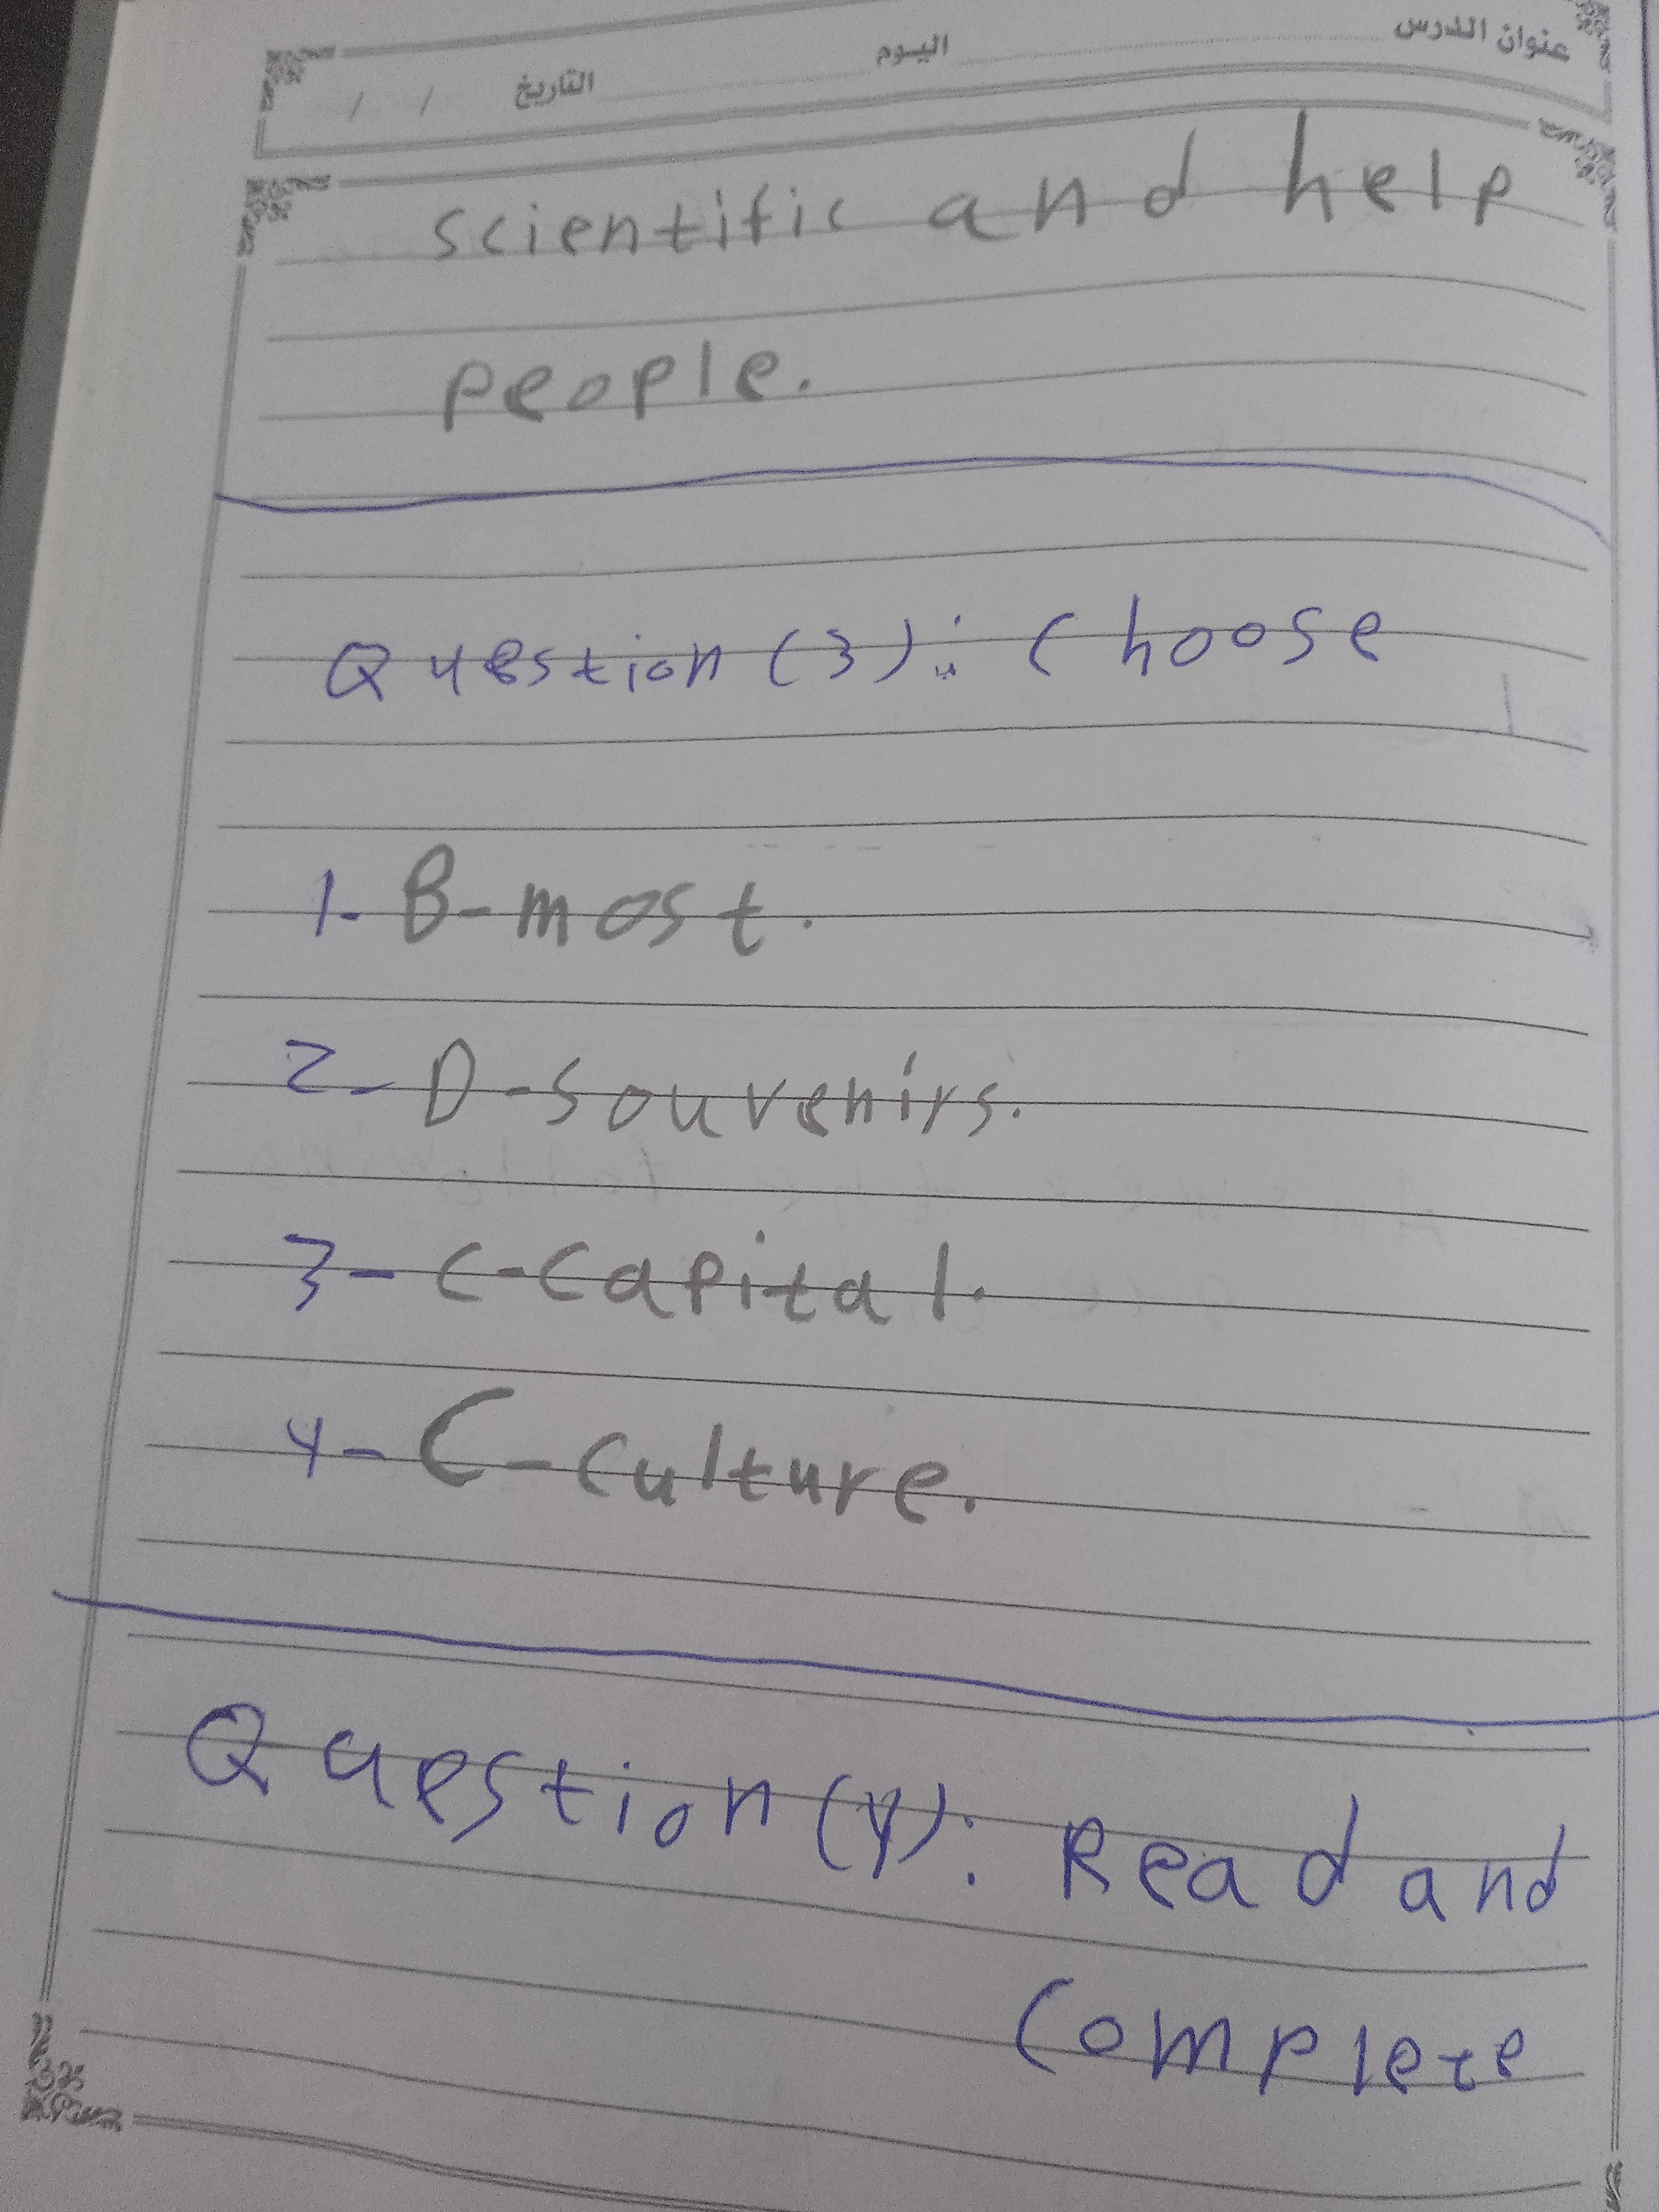 عنوان الدرس اليوم التاريخ / /
scientific and help
people.
Question (3): Choose
1- B-most.
2- D-souvenirs.
3- C-capital.
4- C-culture.
Question (4): Read and
Complete